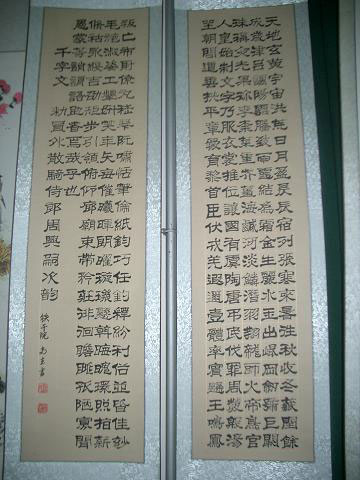 天地玄黃宇宙洪荒日月盈昃辰宿列張寒來暑往秋收冬藏閏餘
成歲律呂調陽雲騰致雨露結為霜金生麗水玉出崑岡劍號巨闕
珠稱夜光果珍李柰菜重芥薑海鹹河淡鱗潛羽翔龍師火帝鳥官
人皇始制文字乃服衣裳推位讓國有虞陶唐弔民伐罪周發殷湯
坐朝問道垂拱平章愛育黎首臣伏戎羌遐邇壹體率賓歸王鳴鳳
叛亡布射僚丸嵇琴阮嘯恬筆倫紙鈞巧任釣釋紛利俗並皆佳妙
毛施淑姿工顰妍笑年矢每催曦暉朗曜璇璣懸斡晦魄環照指薪
脩祜永綏吉劭矩步引領俯仰廊廟束帶矜莊徘徊瞻眺孤陋寡聞
愚蒙等誚謂語助者焉哉乎也
千字文 敕員外散騎侍郎周興嗣次韻